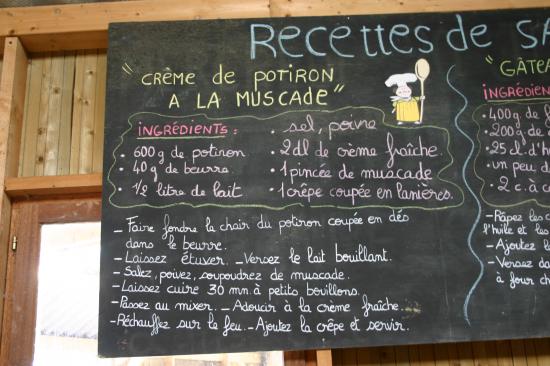 Recettes de SA
"CRÈME de POTIRON
A LA MUSCADE"
INGRÉDIENTS :
• 600 g de potiron
• 40 g de beurre
• 1/2 litre de lait
• sel, poivre
• 2 dl de crème fraîche
• 1 pincée de muscade
• 1 crêpe coupée en lanières.
_ Faire fondre la chair du potiron coupée en dés
dans le beurre.
_ Laissez étuver. _ Versez le lait bouillant.
_ Salez, poivez, soupoudrez de muscade.
_ Laissez cuire 30 mn. à petits bouillons.
_ Passez au mixer. _ Adoucir à la crème fraîche...
_ Réchauffez sur le feu. _ Ajoutez la crêpe et servir.
"GÂTEA
INGRÉDIEN
• 400 g de
• 200 g de
• 25 cl d'h
• un peu d
• 2 c. à c
_ Râpez les c
l'huile et les
_ Ajoutez l
_ Versez da
à four ch